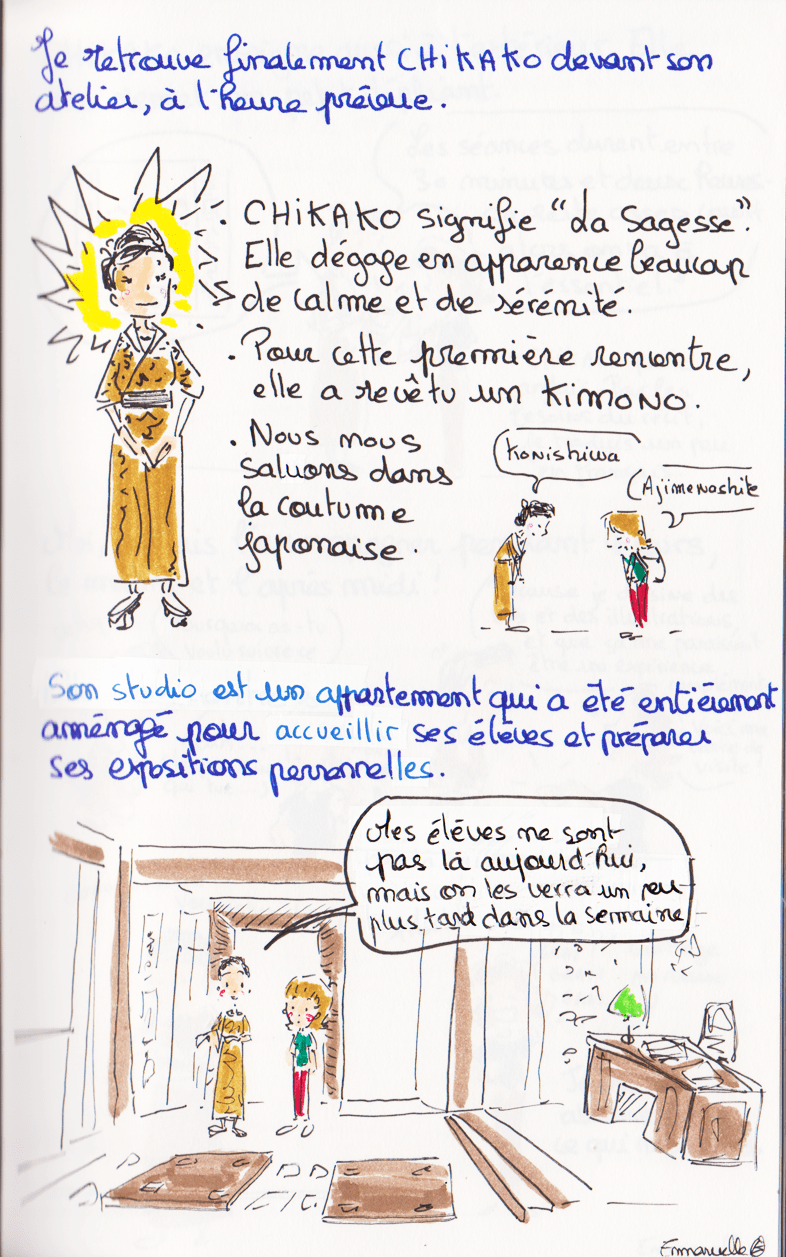 Je retrouve finalement CHIKAKO devant son
atelier, à l'heure prévue.
. CHIKAKO signifie "La Sagesse".
Elle dégage en apparence beaucoup
de calme et de sérénité.
. Pour cette première rencontre,
elle a revêtu un KIMONO.
. Nous nous
saluons dans
la coutume
japonaise.
Konishiwa
Ajimemashite
Son studio est un appartement qui a été entièrement
aménagé pour accueillir ses élèves et préparer
ses expositions personnelles.
Mes élèves ne sont
pas là aujourd'hui,
mais on les verra un peu
plus tard dans la semaine
Emmanuelle